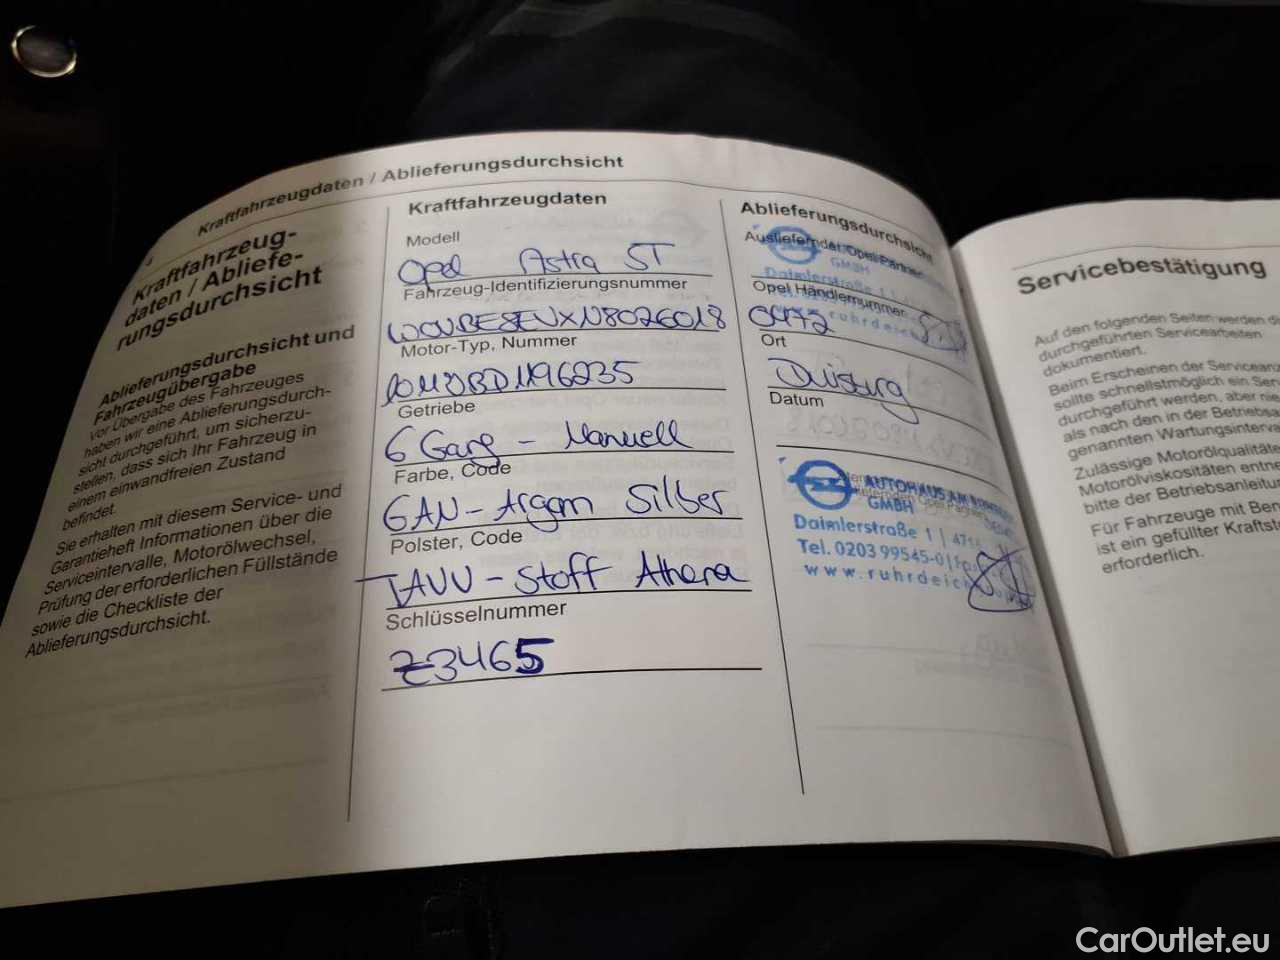 4
Kraftfahrzeugdaten / Ablieferungsdurchsicht
Kraftfahrzeug-
daten / Abliefe-
rungsdurchsicht
Ablieferungsdurchsicht und
Fahrzeugübergabe
Vor Übergabe des Fahrzeuges
haben wir eine Ablieferungsdurch-
sicht durchgeführt, um sicherzu-
stellen, dass sich Ihr Fahrzeug in
einem einwandfreien Zustand
befindet.
Sie erhalten mit diesem Service- und
Garantieheft Informationen über die
Serviceintervalle, Motorölwechsel,
Prüfung der erforderlichen Füllstände
sowie die Checkliste der
Ablieferungsdurchsicht.
Kraftfahrzeugdaten
Modell
Opel Astra ST
Fahrzeug-Identifizierungsnummer
W0VBE8EVXN8026018
Motor-Typ, Nummer
Getriebe
6 Gang - Manuell
Farbe, Code
GAN - Argom Silber
Polster, Code
TAVV - Stoff Athena
Schlüsselnummer
Z3465
Ablieferungsdurchsicht
Ausliefernder Opel Partner
GMBH
Daimlerstraße 11
Opel Händlernummer
0472
Ort
Duisburg
Datum
AUTOHAUS AM
GMBH
Daimlerstraße 1 |
Tel. 0203 99545-0 |
www.ruhrdeich
Servicebestätigung
Auf den folgenden Seiten werden
durchgeführten Servicearbeiten
dokumentiert.
Beim Erscheinen der
sollte schnellstmöglich ein
durchgeführt werden, aber
als nach den in der
genannten
Zulässige Motorölqualitäten
Motorölviskositäten
bitte der Betriebsanleitung
Für Fahrzeuge mit
ist ein gefüllter
erforderlich.
CarOutlet.eu